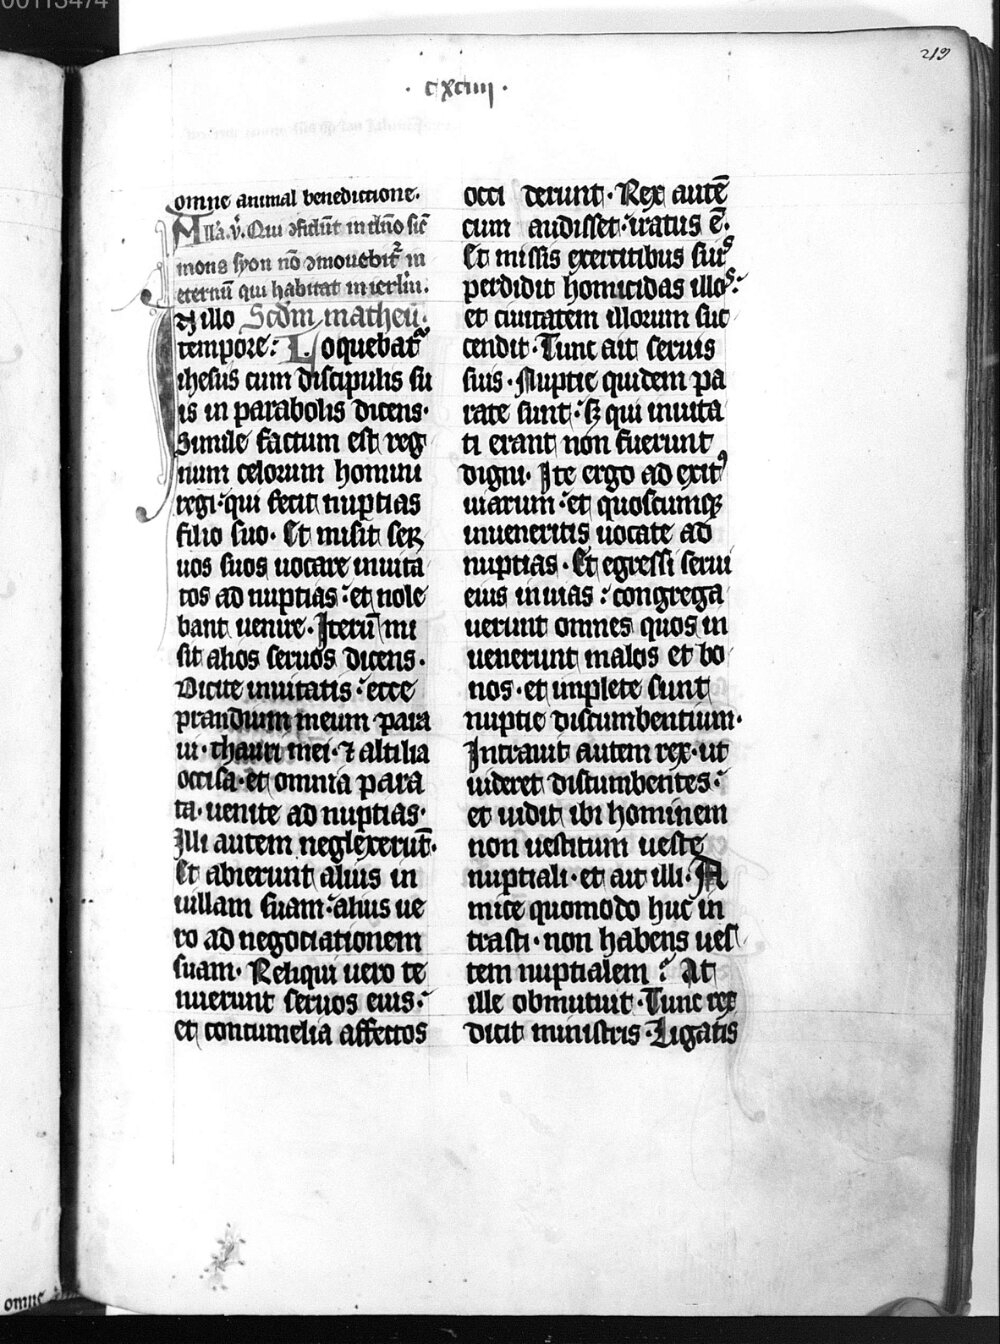 00113474
219
· cxciiij ·
omne animal benedictione.
Alla. v̄. Qui ↄfidūt in dño sic̄
mons syon nō ↄmouebit᷑ in
eternū qui habitat in ierl̄m.
In illo Scd̄m matheū.
tempore: Loquebat᷑
ihesus cum discipulis su
is in parabolis dicens·
Simile factum est reg
num celorum homini
regi: qui fecit nuptias
filio suo. Et misit ser
uos suos uocare inuita
tos ad nuptias: et nole
bant uenire. Iterū mi
sit alios seruos dicens.
Dicite inuitatis: ecce
prandium meum para
ui· thauri mei· ⁊ altilia
occisa· et omnia para
ta· uenite ad nuptias·
Illi autem neglexerūt·
Et abierunt alius in
uillam suam: alius ue
ro ad negotiationem
suam. Reliqui uero te
nuerunt seruos eius:
et contumelia affectos
occi derunt. Rex autē
cum audisset: iratus ē.
Et missis exercitibus suis
perdidit homicidas illos:
et ciuitatem illorum suc
cendit. Tunc ait seruis
suis. Nuptie quidem pa
rate sunt: sꝫ qui inuita
ti erant non fuerunt
digni. Ite ergo ad exitꝰ
uiarum: et quoscumqꝫ
inueneritis uocate ad
nuptias. Et egressi serui
eius in uias: congrega
uerunt omnes quos in
uenerunt malos et bo
nos· et implete sunt
nuptie discumbentium·
Intrauit autem rex· ut
uideret discumbentes:
et uidit ibi hominem
non uestitum ueste
nuptiali· et ait illi. A
mice quomodo huc in
trasti· non habens ues
tem nuptialem? At
ille obmutuit. Tunc rex
dicit ministris. Ligatis
omne